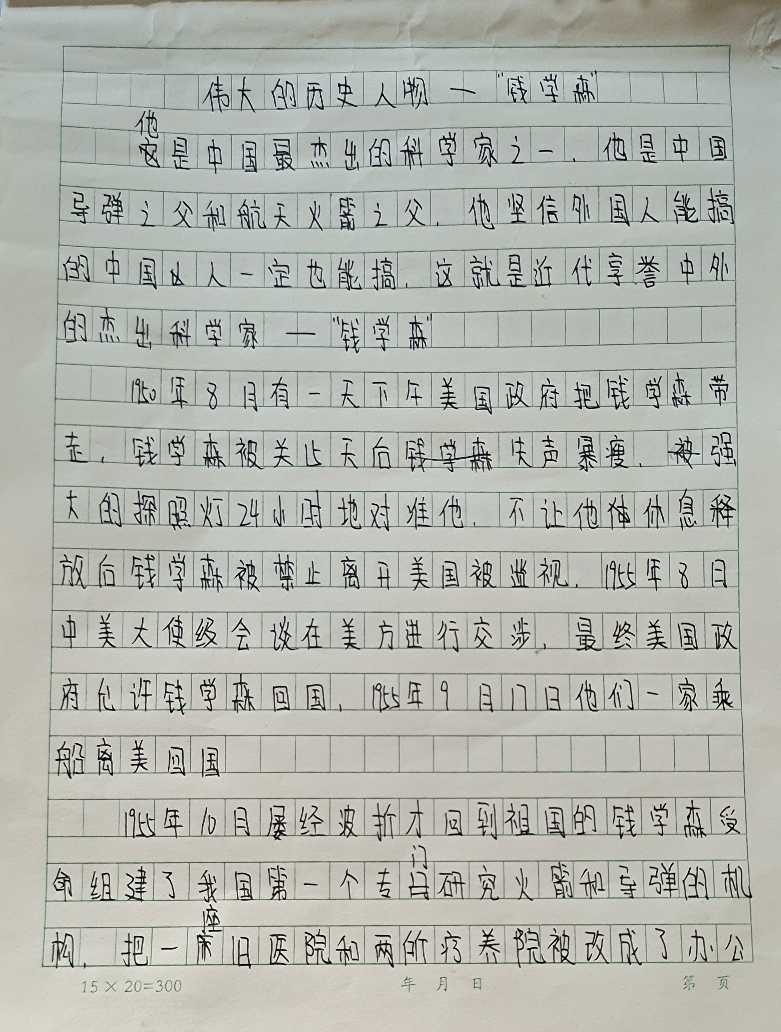 伟大的历史人物一"钱学森"
他是中国最杰出的科学家之一.他是中国
导弹之父和航天火箭之父.他坚信外国人能搞
的中国人一定也能搞.这就是近代享誉中外
的杰出科学家一"钱学森"
1950年8月有一天下午美国政府把钱学森带
走.钱学森被关15天后失声暴瘦.强
大的探照灯24小时地对准他.不让他休息释
放后钱学森被禁止离开美国被监视.1955年8日
中美大使级会谈在美方进行交涉.最终美国政
府允许钱学森回国.1955年9月17日他们一家乘
船离美回国
1955年10月屡经波折才回到祖国的钱学森受
命组建了我国第一个专门研究火箭和导弹的机
构.把一座旧医院和两所疗养院被改成了办公
15×20=300 年 月 日 第 页